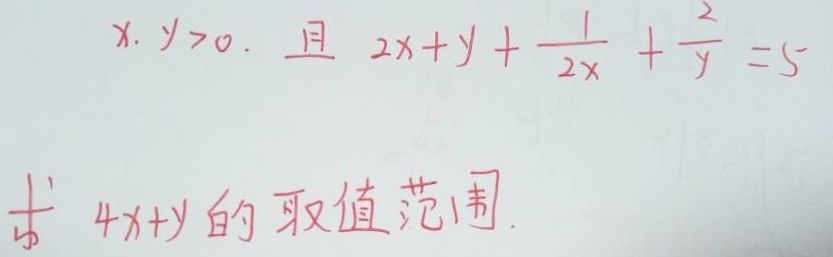 x. y>0. 且 2x+y+\frac{1}{2x}+\frac{2}{y}=5
求 4x+y的取值范围.